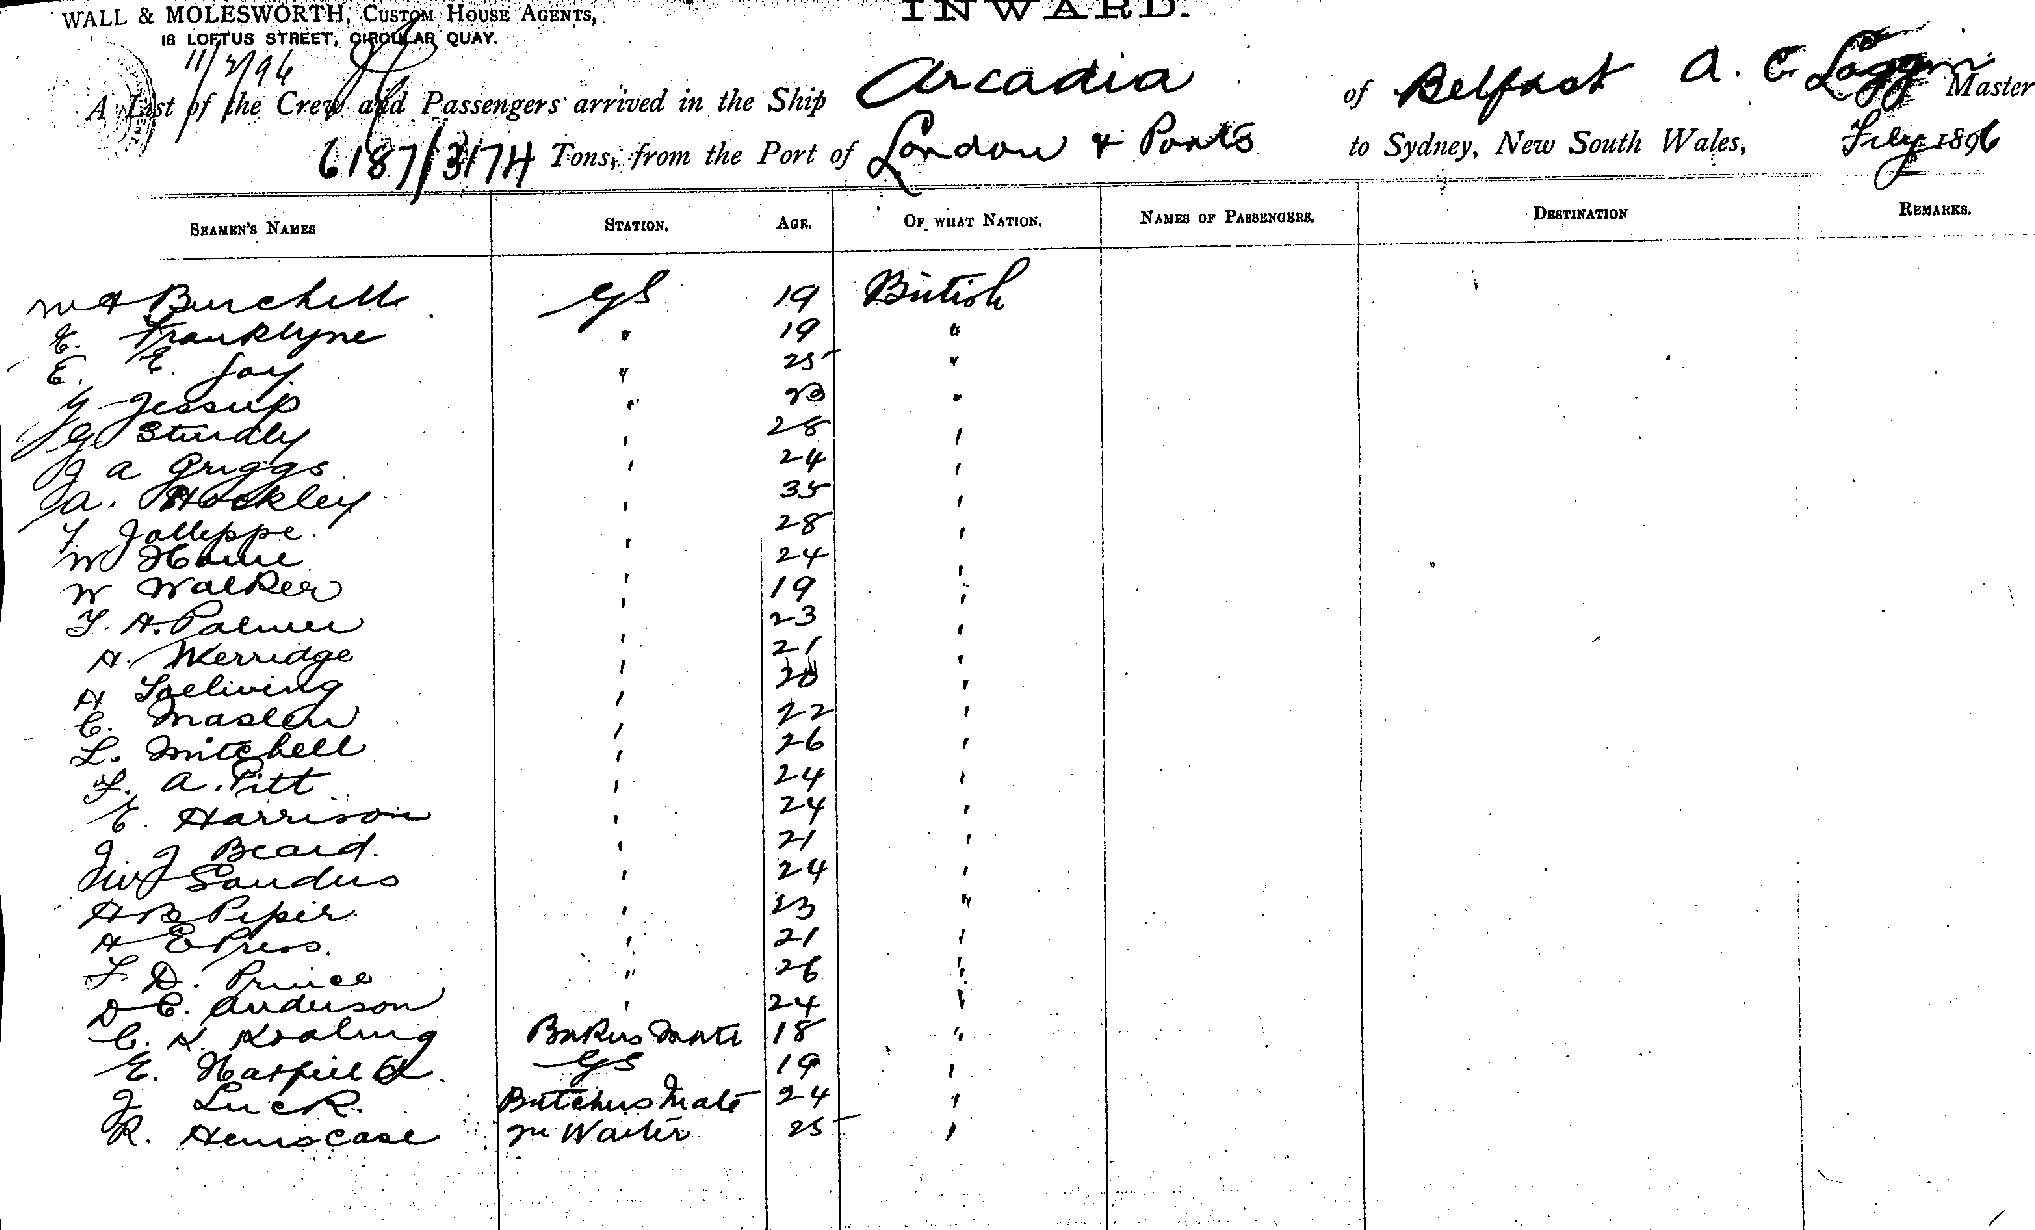 WALL & MOLESWORTH, CUSTOM HOUSE AGENTS,
18 LOFTUS STREET, CIRCULAR QUAY.
INWARD.
11/2/96
A List of the Crew and Passengers arrived in the Ship Arcadia of Belfast A. C. Loggin Master
6187/3174 Tons, from the Port of London & Ports to Sydney, New South Wales, Feby 1896
SEAMEN'S NAMES STATION. AGE. OF WHAT NATION. NAMES OF PASSENGERS. DESTINATION REMARKS.
W H Burchell GS 19 British
E. Franklyne " 19 "
E. E. Joy " 25 "
Jessup " 23 "
J G Sturdy " 28 "
J A Griggs " 24 "
A. Hockley " 35 "
Jolleppe " 28 "
W Howe " 24 "
W Walker " 19 "
F. H. Palmer " 23 "
A. Merridge " 21 "
H "
C. Maslen " 22 "
L. Mitchell " 26 "
F. A. Pitt " 24 "
E. Harrison " 24 "
J J Beard " 21 "
Sanders " 24 "
H B Piper " 23 "
H E Press " 21 "
F. D. Prince " 26 "
D C. Anderson " 24 "
C. H. Bakers Mate 18 "
E. GS 19 "
J Luck Butchers Mate 24 "
R. Hemscase Waiter 25 "